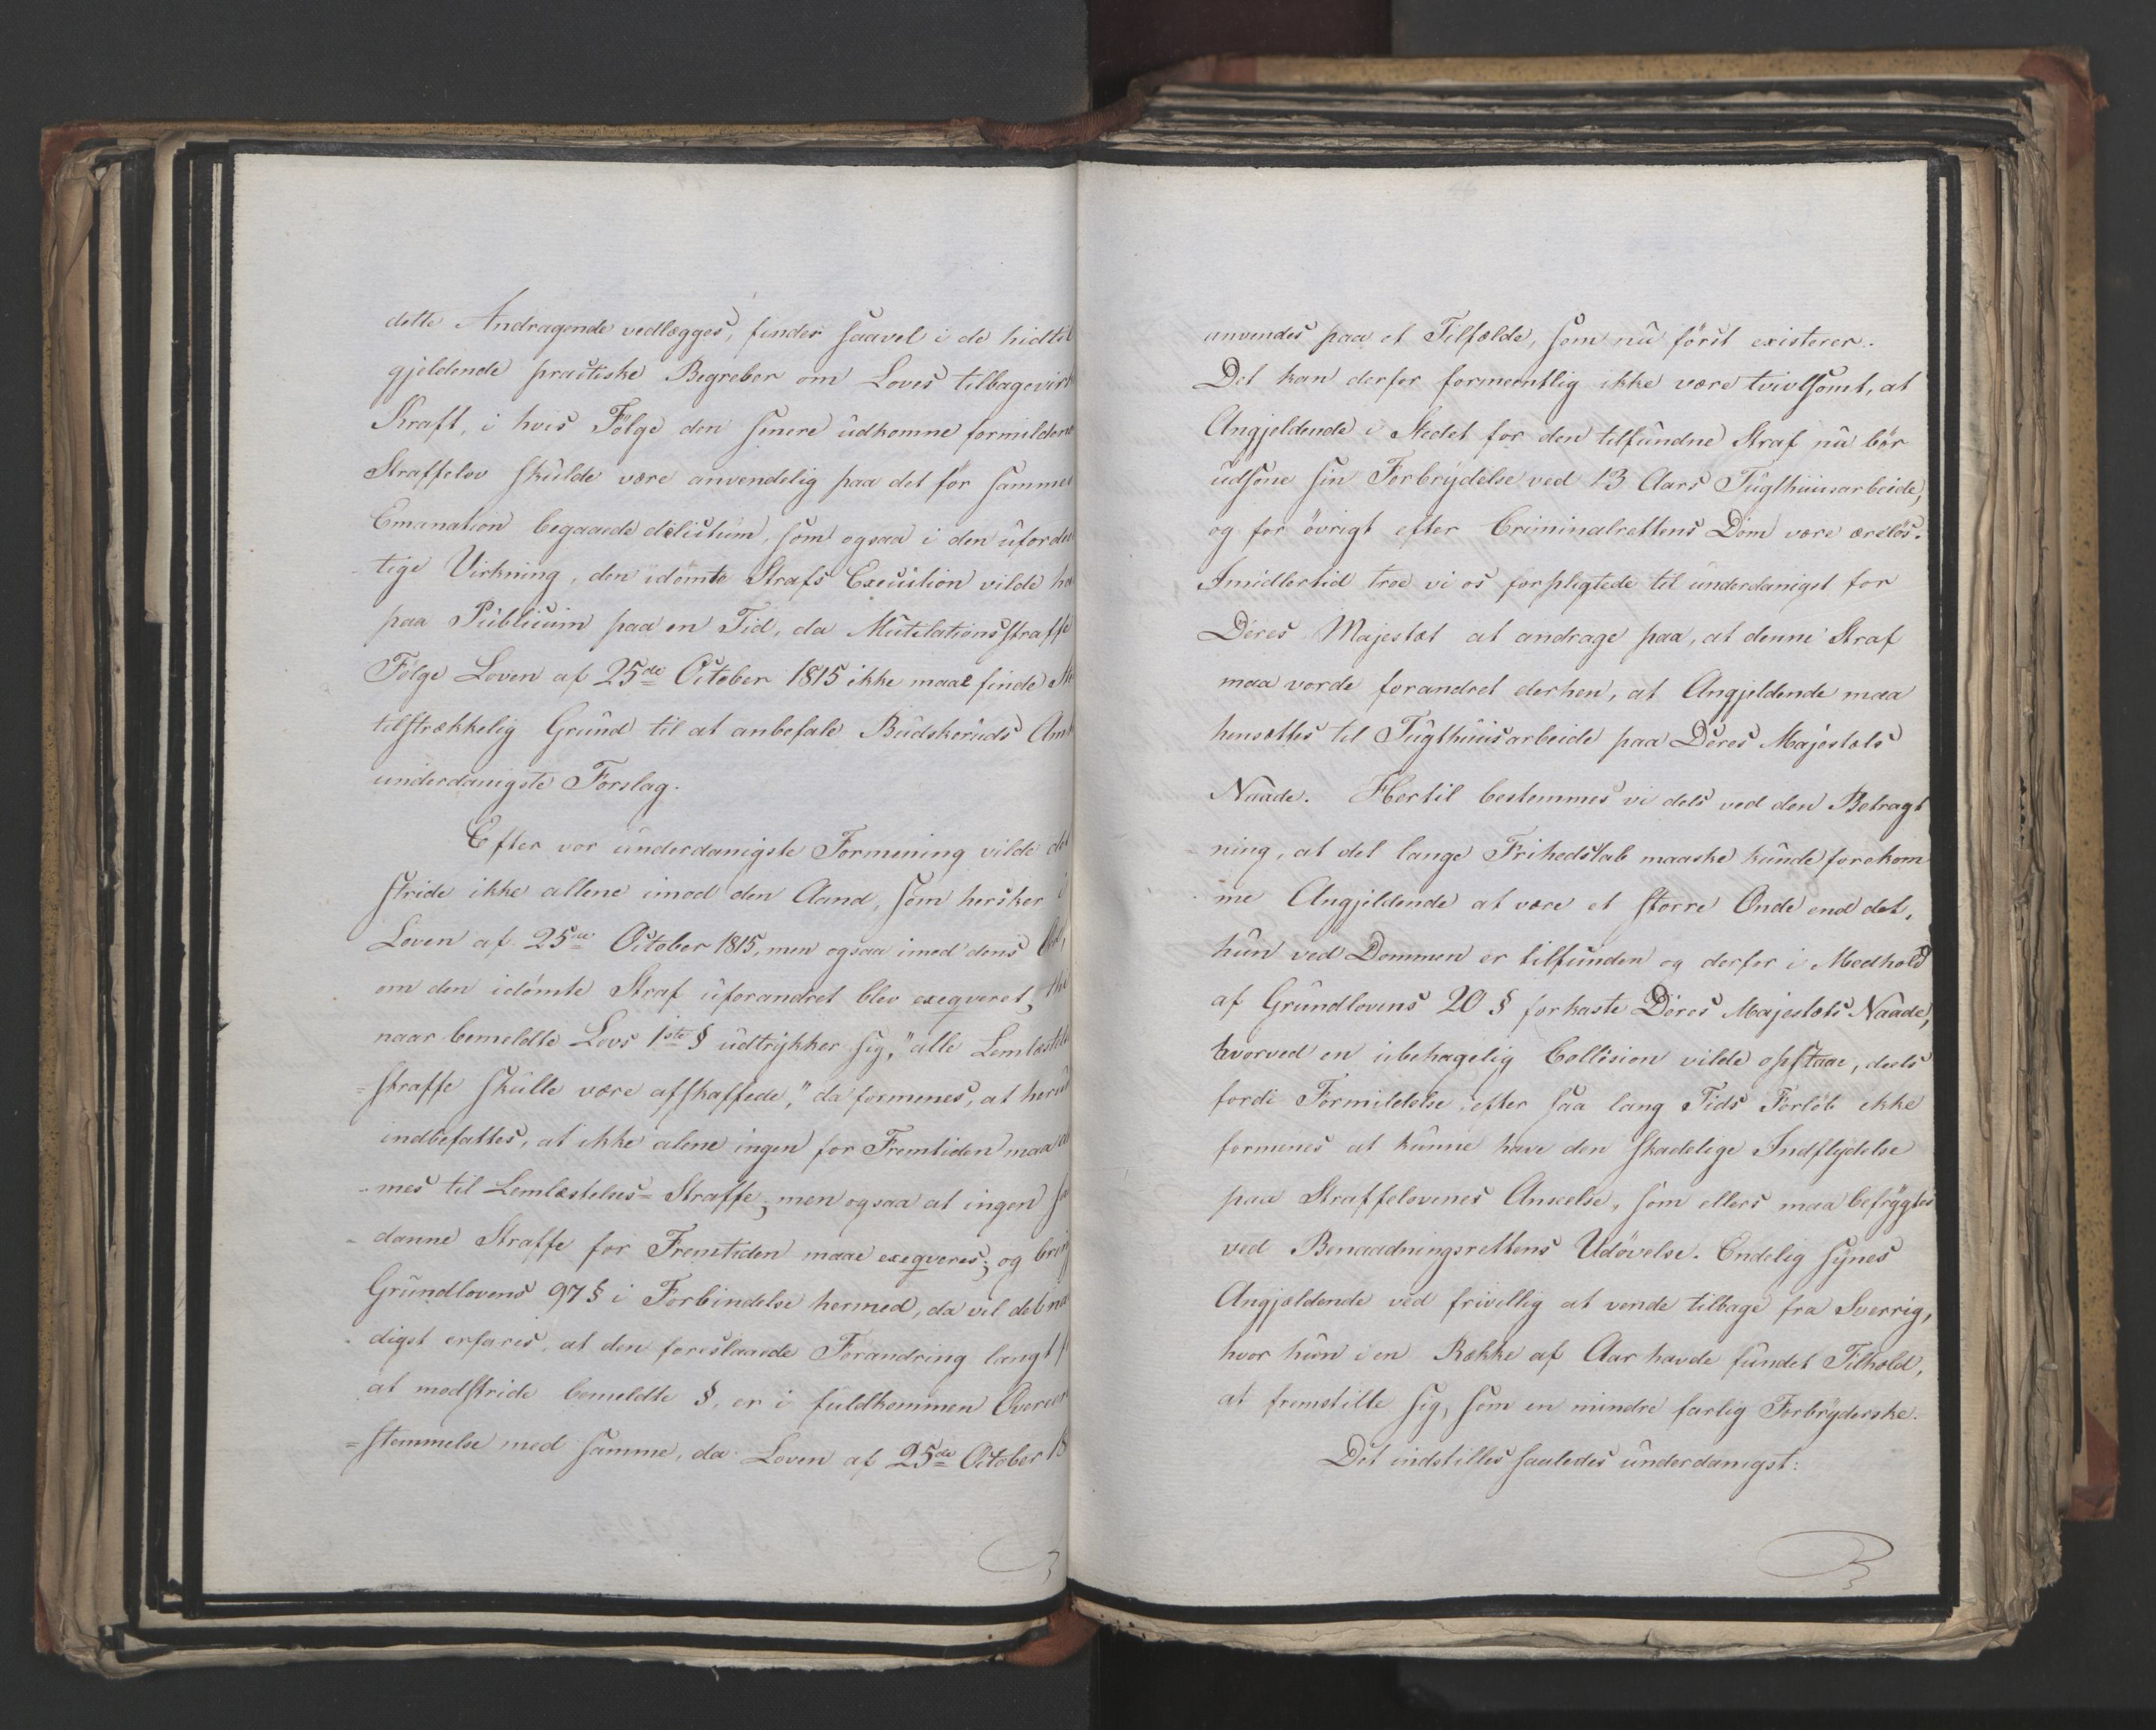 dette Andragende vedlægges, finder saavel i de hidtil
gjeldende practiske Begreber om Loves tilbagevirk
Kraft, i hvis Følge den senere udkomne formildende
Straffelov skulde være anvendelig paa det før sammes
Emanation begaaede delictum, som ogsaa i den ufordel
tige Virkning, den idømte Strafs Execution vilde ha
paa Publicum paa en Tid, da Mutilationsstraffe
Følge Loven af 25de October 1815 ikke maae finde St
tilstrækkelig Grund til at anbefale Budskeruds Amt
underdanigste Forslag.
Efter vor underdanigste Formening vilde det
stride ikke allene imod den Aand, som hersker i
Loven af 25de October 1815, men ogsaa imod dens
om den idømte Straf uforandret blev exeqveret, thi
naar bemeldte Lovs 1ste § udtrykker sig, "alle Lemlæstelses
=straffe skulle være afskaffede," da formenes, at herud
indbefattes, at ikke alene ingen for Fremtiden maa
-mes til Lemlæstelses=Straffe, men ogsaa at ingen sa
-danne Straffe for Fremtiden maae exeqveres; og bring
Grundlovens 97 § i Forbindelse hermed, da vil det na
-digst erfares, at den foreslaaede Forandring langt f
at modstride bemeldte §, er i fuldkommen Overeens
=stemmelse med samme, da Loven af 25de October 18
anvendes paa et Tilfælde, som nu først existerer.
Det kan derfor formeentlig ikke være tvivlsomt, at
Angjeldende i Stedet for den tilfundne Straf nu bør
udsone sin Forbrydelse ved 13 Aars Tugthuusarbeide,
og for øvrigt efter Criminalrettens Dom være ærelös.
Imidlertid troe vi os forpligtede til underdanigst for
Deres Majestæt at andrage paa, at denne Straf
maa vorde forandret derhen, at Angjeldende maa
hensættes til Tugthuusarbeide paa Deres Majestæts
Naade. Hertil bestemmes vi dels ved den Betragt
-ning, at det lange Frihedstab maaske kunde forekom
-me Angjeldende at være et større Onde end det,
hun ved Dommen er tilfunden og derfor i Medhold
af Grundlovens 20 § forkaste Deres Majestæts Naade,
hvorved en ubehagelig Collision vilde opstaae, deels
fordi Formildelse, efter saa lang Tids Forløb ikke
formenes at kunne have den skadelige Indflydelse
paa Straffelovenes Anseelse, som ellers maa befrygtes
ved Benaadningsrettens Udøvelse. Endelig synes
Angjældende ved frivillig at vende tilbage fra Sverrig,
hvor hun i en Række af Aar havde fundet Tilhold,
at fremstille sig, som en mindre farlig Forbryderske.
Det indstilles saaledes underdanigst: